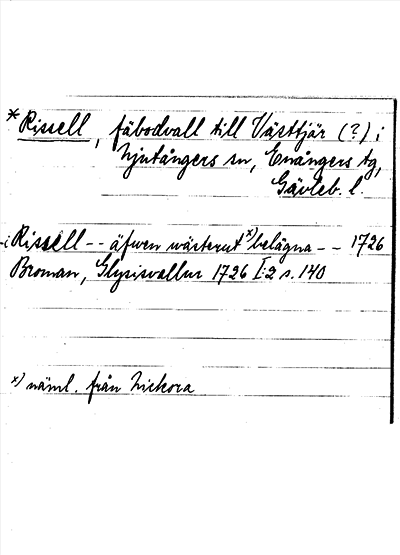 *Rissell, fäbodvall till Västtjär (?) i
Njutångers sn, Enångers tg,
Gävleb. l.
i Rissell -- äfwen wästerut x) belägna -- 1726
Broman, Glysisvallur 1726 I:2 s. 140
x) näml. från Nickora